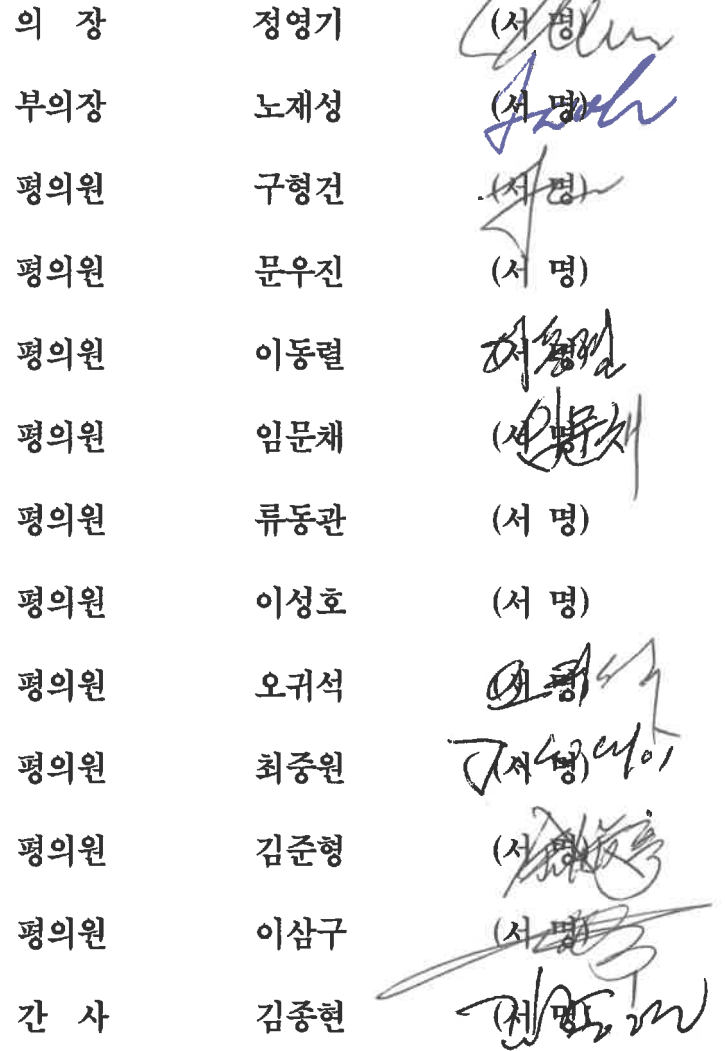 의 장 정영기 (서 명)
부의장 노재성 (서 명)
평의원 구형건 (서 명)
평의원 문우진 (서 명)
평의원 이동렬 (서 명)
평의원 임문채 (서 명)
평의원 류동관 (서 명)
평의원 이성호 (서 명)
평의원 오귀석 (서 명)
평의원 최중원 (서 명)
평의원 김준형 (서 명)
평의원 이삼구 (서 명)
간 사 김종현 (서 명)